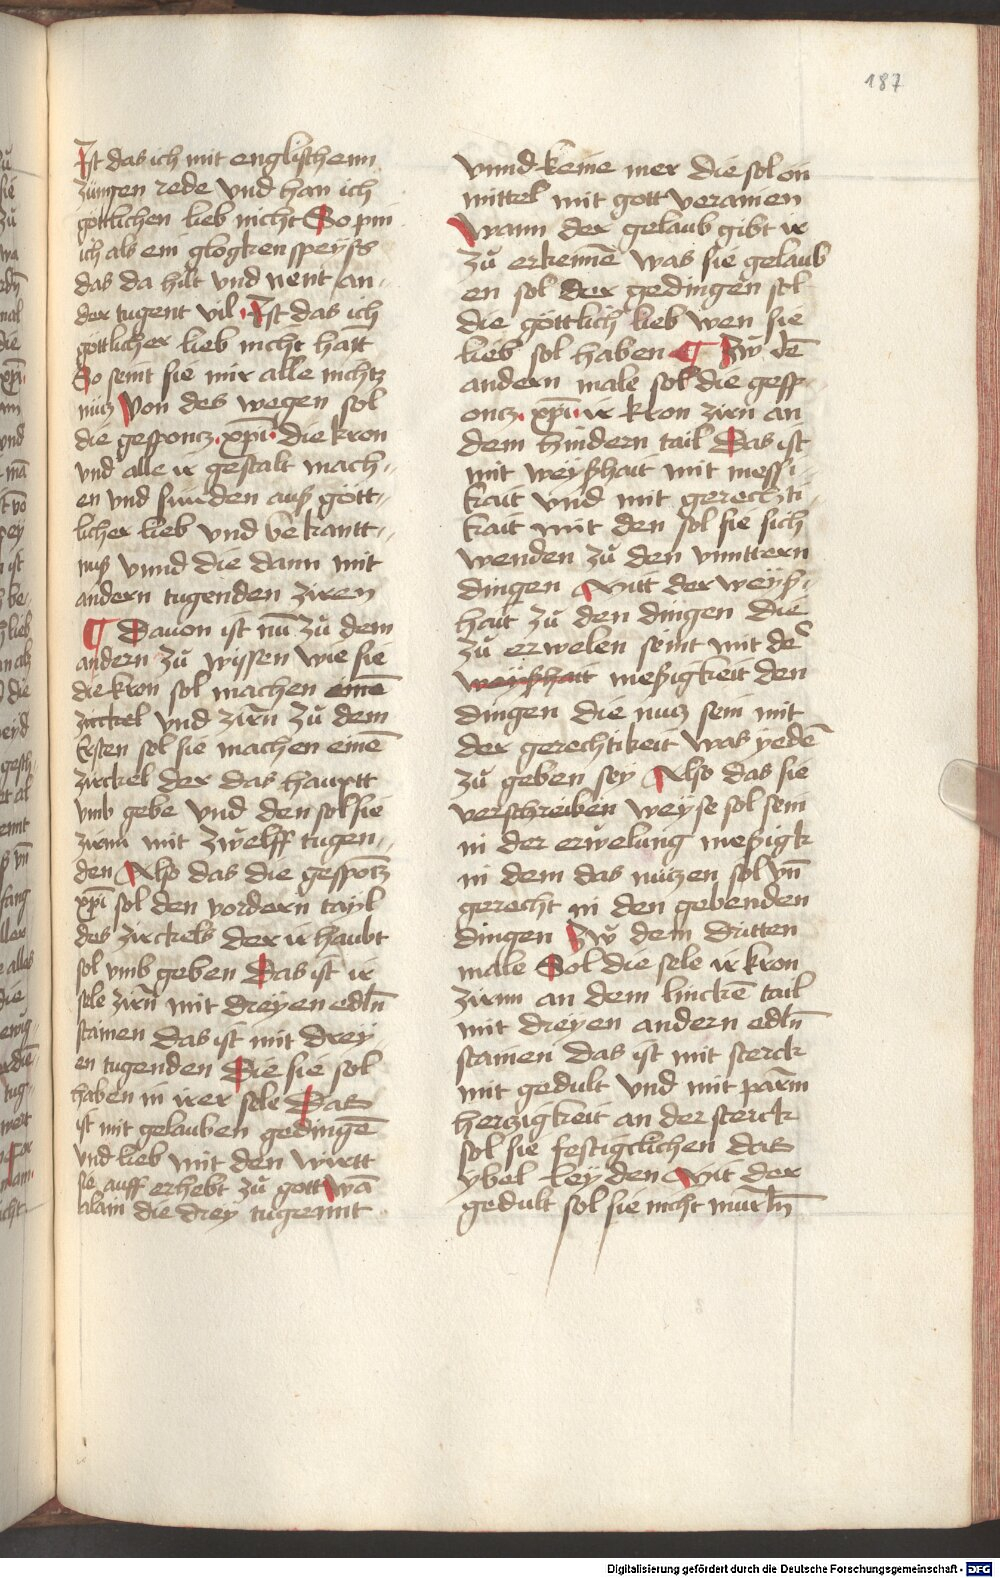 187
Ist das ich mit englischenn
züngen rede vnd han ich
göttlichen lieb nicht So pin
ich als ein glogken speyß
das da hilt vnd nent an„
der tugent vil · Ist das ich
göttlicher lieb nicht hatt
So seint sie mir alle nichtz
nücz Von des wegen sol
die gesponcz · xp̄i · die kron
vnd alle ir gestalt mach„
en vnd sünden auß gött„
licher lieb vnd bekantt„
nuß vnnd die dann mit
andern tugenden ziren
¶ Dauon ist nū zů dem
andern zů wissen wie sie
die kron sol machen einē
zirckel vnd zirn̄ zů dem
Ersten sol sie machen einē
zirckel der das hauptt
vmb gebe vnd den sol sie
zirnn mit zwelff tugen„
den Also das die gespōtz
xp̄i sol den vordern tayl
des zirckels der ir haubt
sol vmb geben Das ist ir
sele zirn̄ mit dreyen edln̄
stainen das ist mit drey
en tugenden Die sie sol
haben in irer sele Das
ist mit gelauben gedingē
vnd lieb mit den wirtt
sie auff erhebt zů gott wā
alain die drey tugennt
vnnd keine mer die sol on
mittel mit gott verainen
Wann der gelaub gibt ir
zů erkennē was sie gelaub
en sol der gedingen sol
die göttlich lieb wen sie
lieb sol haben ¶ Zů dē
andern male sol die gesp„
oncz · xp̄i · ir kron zirn an
dem hindern tail Das ist
mit weyßhait mit messi„
kait vnd mit gerechti„
kait mit den sol sie sich
wenden zů den vnttern
dingen Mitt der weyß„
hait zů den dingen die
zů erwelen seint mit der
weyßhait meßigkeit den
dingen die nucz sein mit
der gerechtikeit was yedē
zů geben sey Also das sie
verschreiben weyse sol sein
in der erwelung meßigk
in dem das nüczen sol vn̄
gerecht in den gebenden
dingen Zů dem dritten
male Sol die sele ir kron
zirnn an dem linckē tail
mit dreyen andern edln̄
stainen das ist mit sterck
mit gedult vnd mit parm
herczigkeit an der sterck
sol sie festigclichen das
ybel leyden Mit der
gedult sol sie nicht murln̄
Digitalisierung gefördert durch die Deutsche Forschungsgemeinschaft - DFG